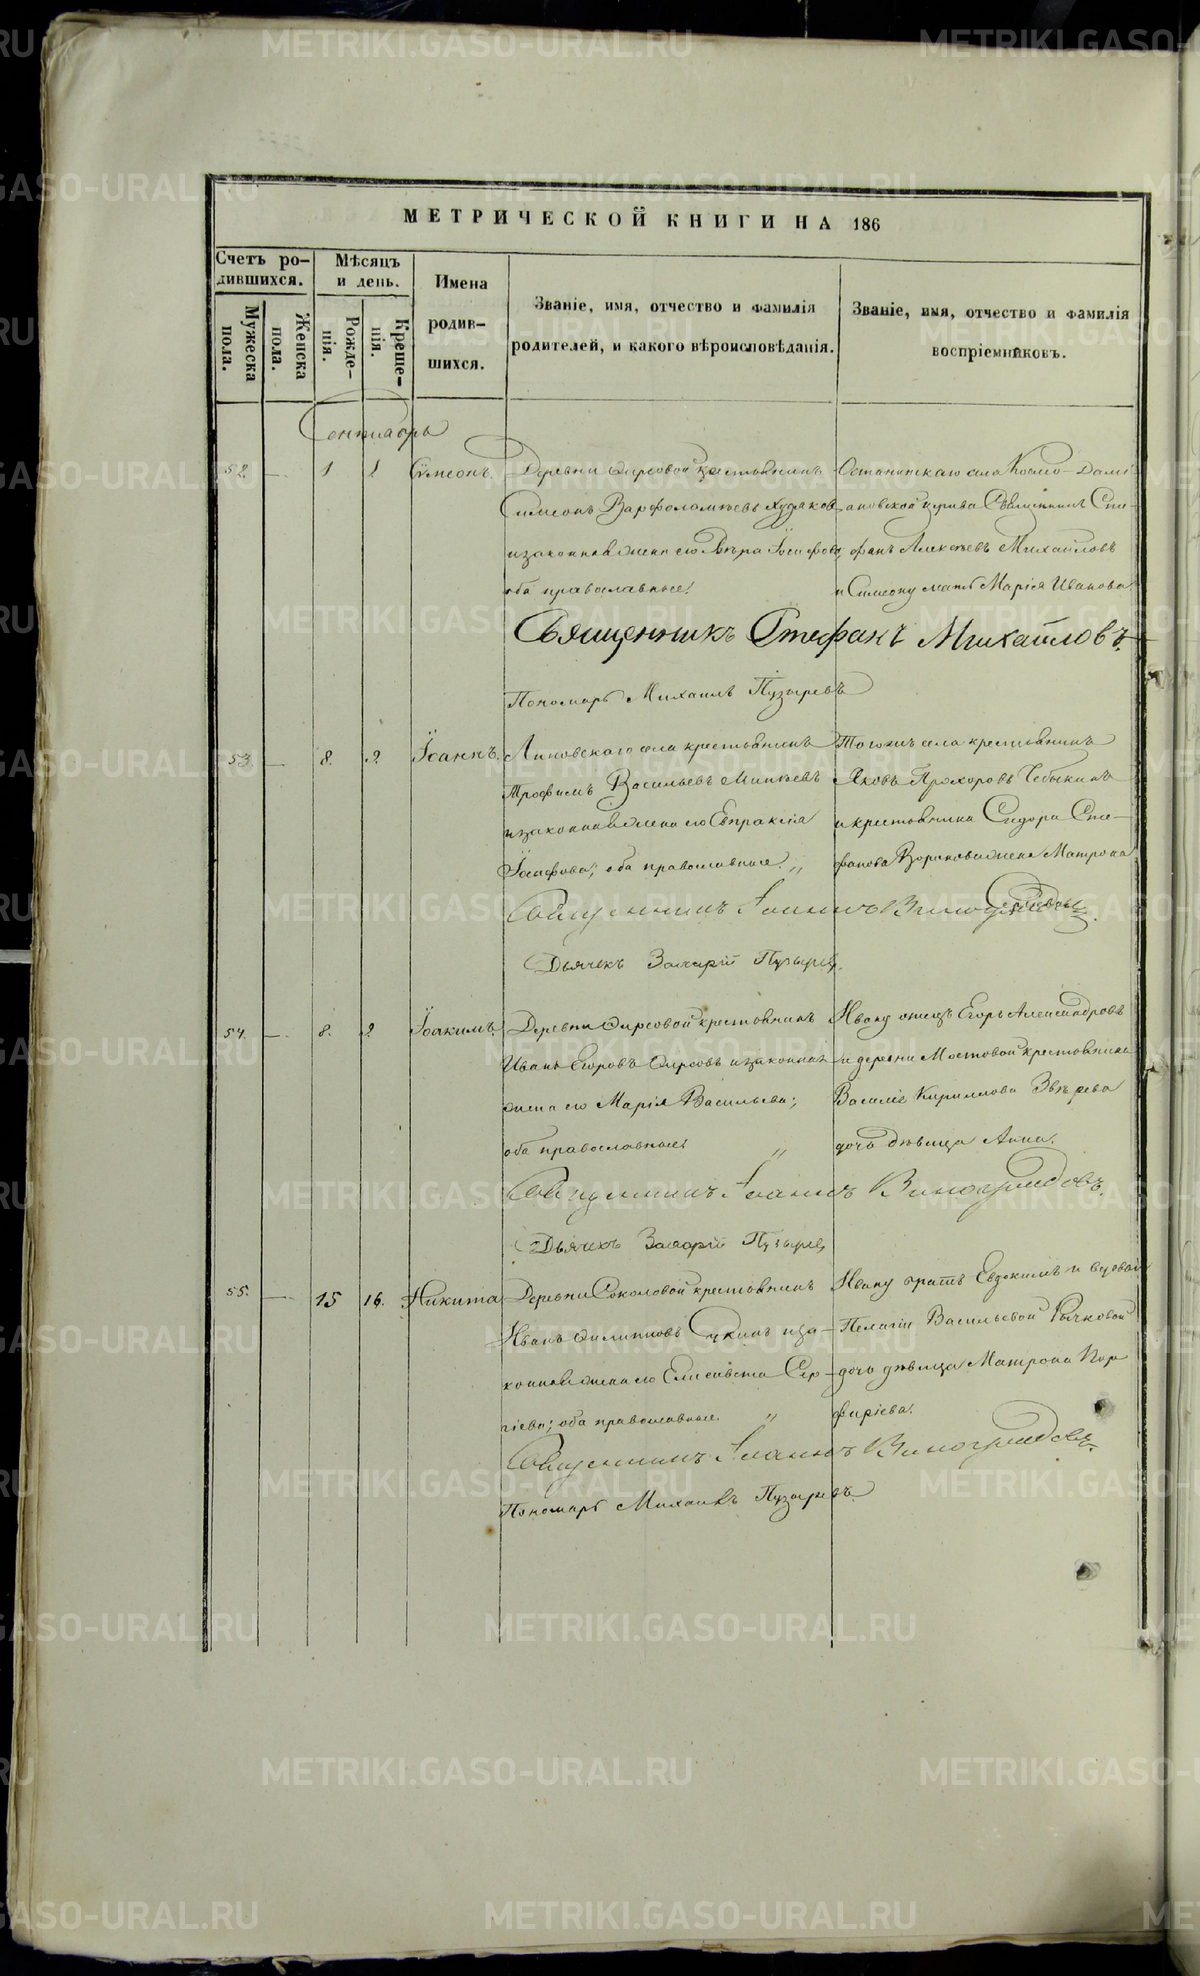 МЕТРИЧЕСКОЙ КНИГИ НА 186
Счетъ ро-
дившихся.
Мѣсяцъ
и день.
Имена
родив-
шихся.
Званіе, имя, отчество и фамилія
родителей, и какого вѣроисповѣданія.
Званіе, имя, отчество и фамилія
воспріемниковъ.
Мужеска
пола.
Женска
пола.
Рожде-
нія.
Креще-
нія.
Сентябрь
52. 1 1 Сѵмеонъ. Деревни Фирсовой крестьянинъ
Симеонъ Варфоломѣевъ Худяковъ
и законная жена его Вѣра Іосифова;
оба православные.
Останинскаго села Космо-Дамі-
ановской церкви Священникъ Сте-
фанъ Алексѣевъ Михайловъ
и Симеону мать Марія Иванова.
Священникъ Стефанъ Михайловъ.
Пономарь Михаилъ Пузыревъ
53. 8. 9 Іоаннъ. Липовскаго села крестьянинъ
Трофимъ Васильевъ Минѣевъ
и законная жена его Евпраксія
Іосифова; оба православные.
Тогожъ села крестьянинъ
Яковъ Прохоровъ Чебыкинъ
и крестьянина Сидора Сте-
фанова Воронова жена Матрона
Сергѣева.
Священникъ Іоаннъ Виноградовъ.
Дьячекъ Захарій Пузыревъ.
54. 8. 9 Іоакимъ. Деревни Фирсовой крестьянинъ
Иванъ Егоровъ Фирсовъ и законная
жена его Марія Васильева;
оба православные.
Ивану отецъ Егоръ Александровъ
и деревни Мостовой крестьянина
Василія Кириллова Звѣрева
дочь дѣвица Анна.
Священникъ Іоаннъ Виноградовъ.
Дьячекъ Захарій Пузыревъ
55. 15 16. Никита Деревни Соколовой крестьянинъ
Иванъ Филипповъ Сукинъ и за-
конная жена его Елисавета Сер-
гіева; оба православные.
Ивану братъ Евдокимъ и вдовой
Пелагіи Васильевой Рычковой
дочь дѣвица Матрона Пор-
фиріева.
Священникъ Іоаннъ Виноградовъ.
Пономарь Михаилъ Пузыревъ.
METRIKI.GASO-URAL.RU